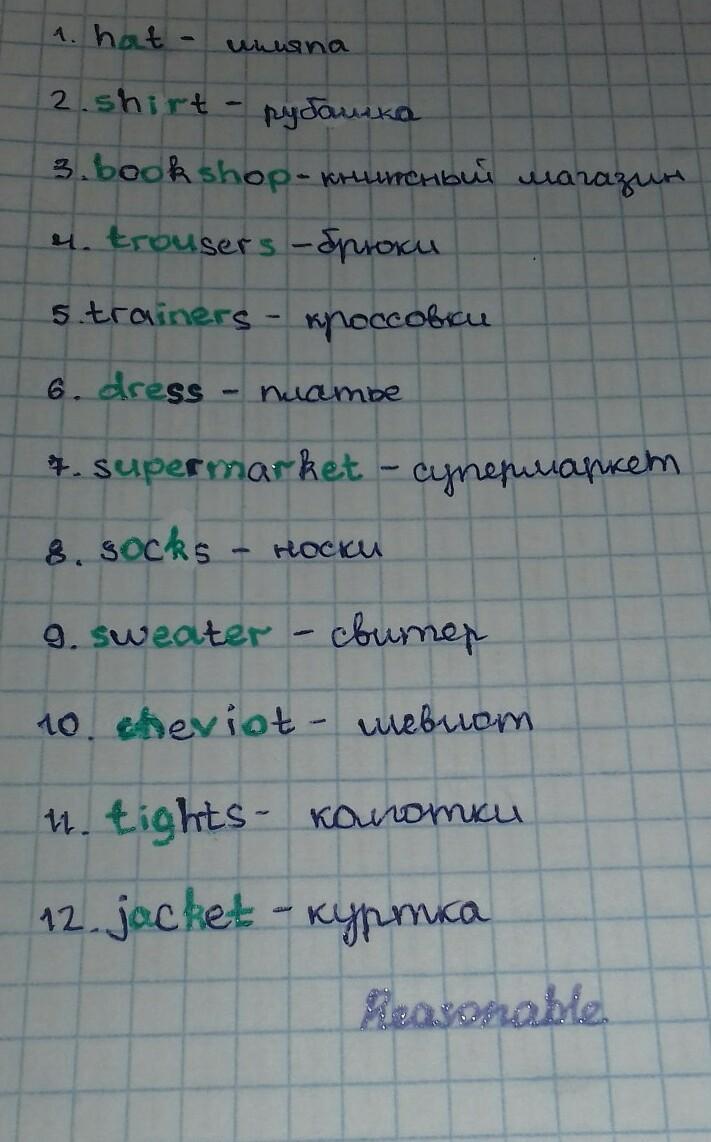 1. hat - шляпа
2. shirt - рубашка
3. bookshop - книжный магазин
4. trousers - брюки
5. trainers - кроссовки
6. dress - платье
7. supermarket - супермаркет
8. socks - носки
9. sweater - свитер
10. cheviot - шевиот
11. tights - колготки
12. jacket - куртка
Reasonable